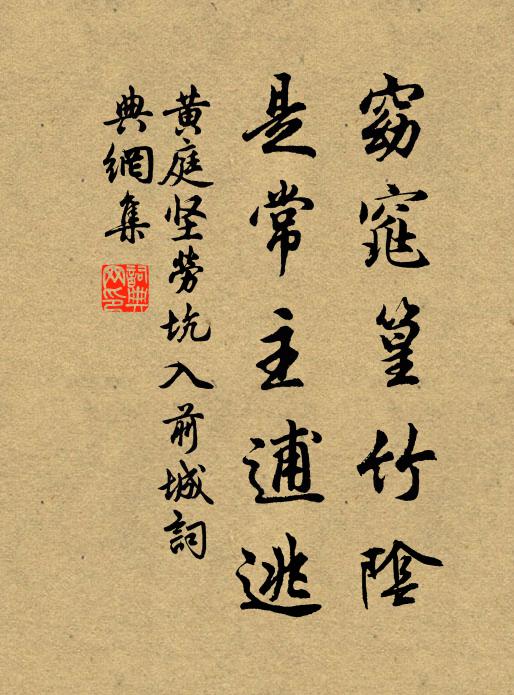 窈窕篁竹陰
是常主逋逃
黄庭坚勞坑入前城詞
典網集
詞典網印